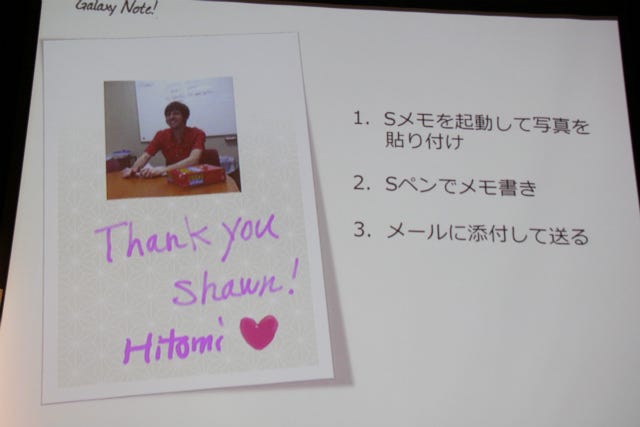 Galaxy Note!
Thank you
Shawn!
Hitomi
1. Sメモを起動して写真を
貼り付け
2. Sペンでメモ書き
3. メールに添付して送る